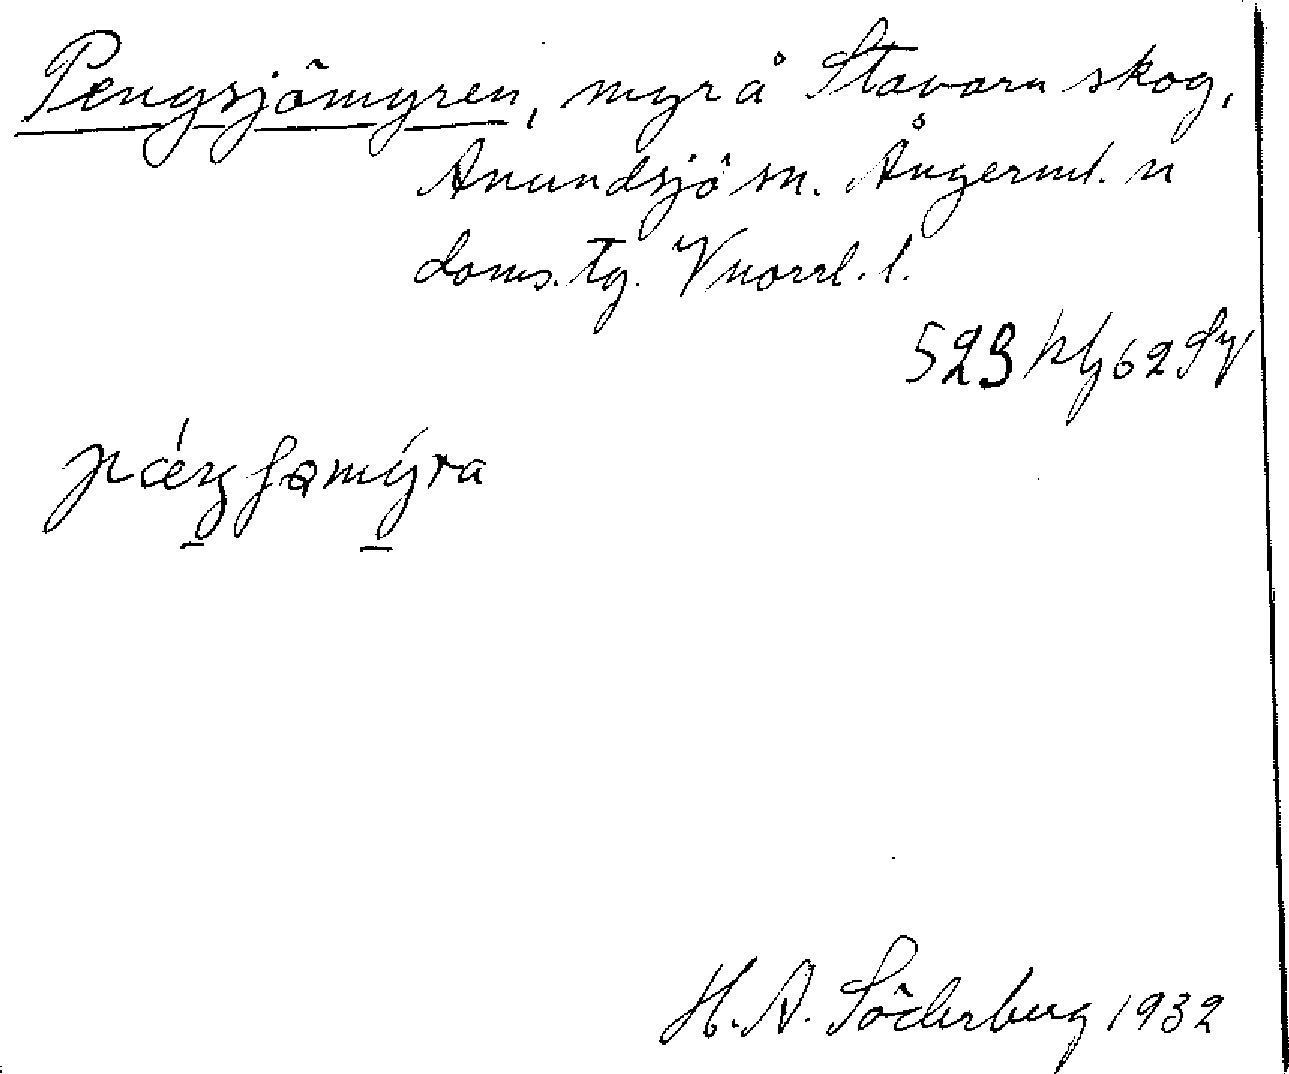 Pengsjömyren, myr å Stavaru skog,
Anundsjö sn. Ångerml. n
doms. tg. Vnorrl. l.
523 kbl 62 SV
pæŋʃømýra
H. A. Söderberg 1932